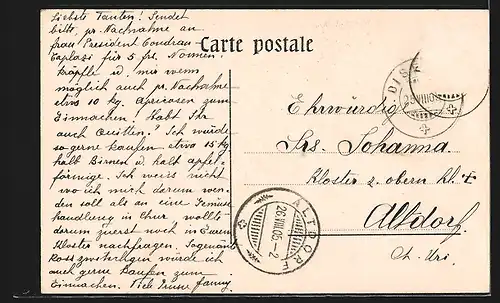 Liebste Tanten! Sendet
bitte pr. Nachnahme an
frau President Condrau-
Caplazi für 5 frs. Nonnen-
kräpfli u. mir wenn
möglich auch pr. Nachnahme
etwa 10 kg. Apricosen zum
Einmachen! Habt Ihr
auch Quitten? Ich würde
so gerne kaufen etwa 15 kg
halb Birnen u. halb apfel-
förmige. Ich weis nicht
wo ich mich darum wen-
den soll als an eine Gemüse
handlung in Chur, wollte
darum zuerst noch in Eurem
Kloster nachfragen. Sogenannte
würde ich
auch gerne kaufen zum
Einmachen. Viele Grüsse fanny.
Carte postale
DIS
VIII 05
Ehrwürdige
Srs. Johanna
Kloster z. obern Kl.
Altdorf.
Ct. Uri.
ALTDORF
26 VIII 05 - 2